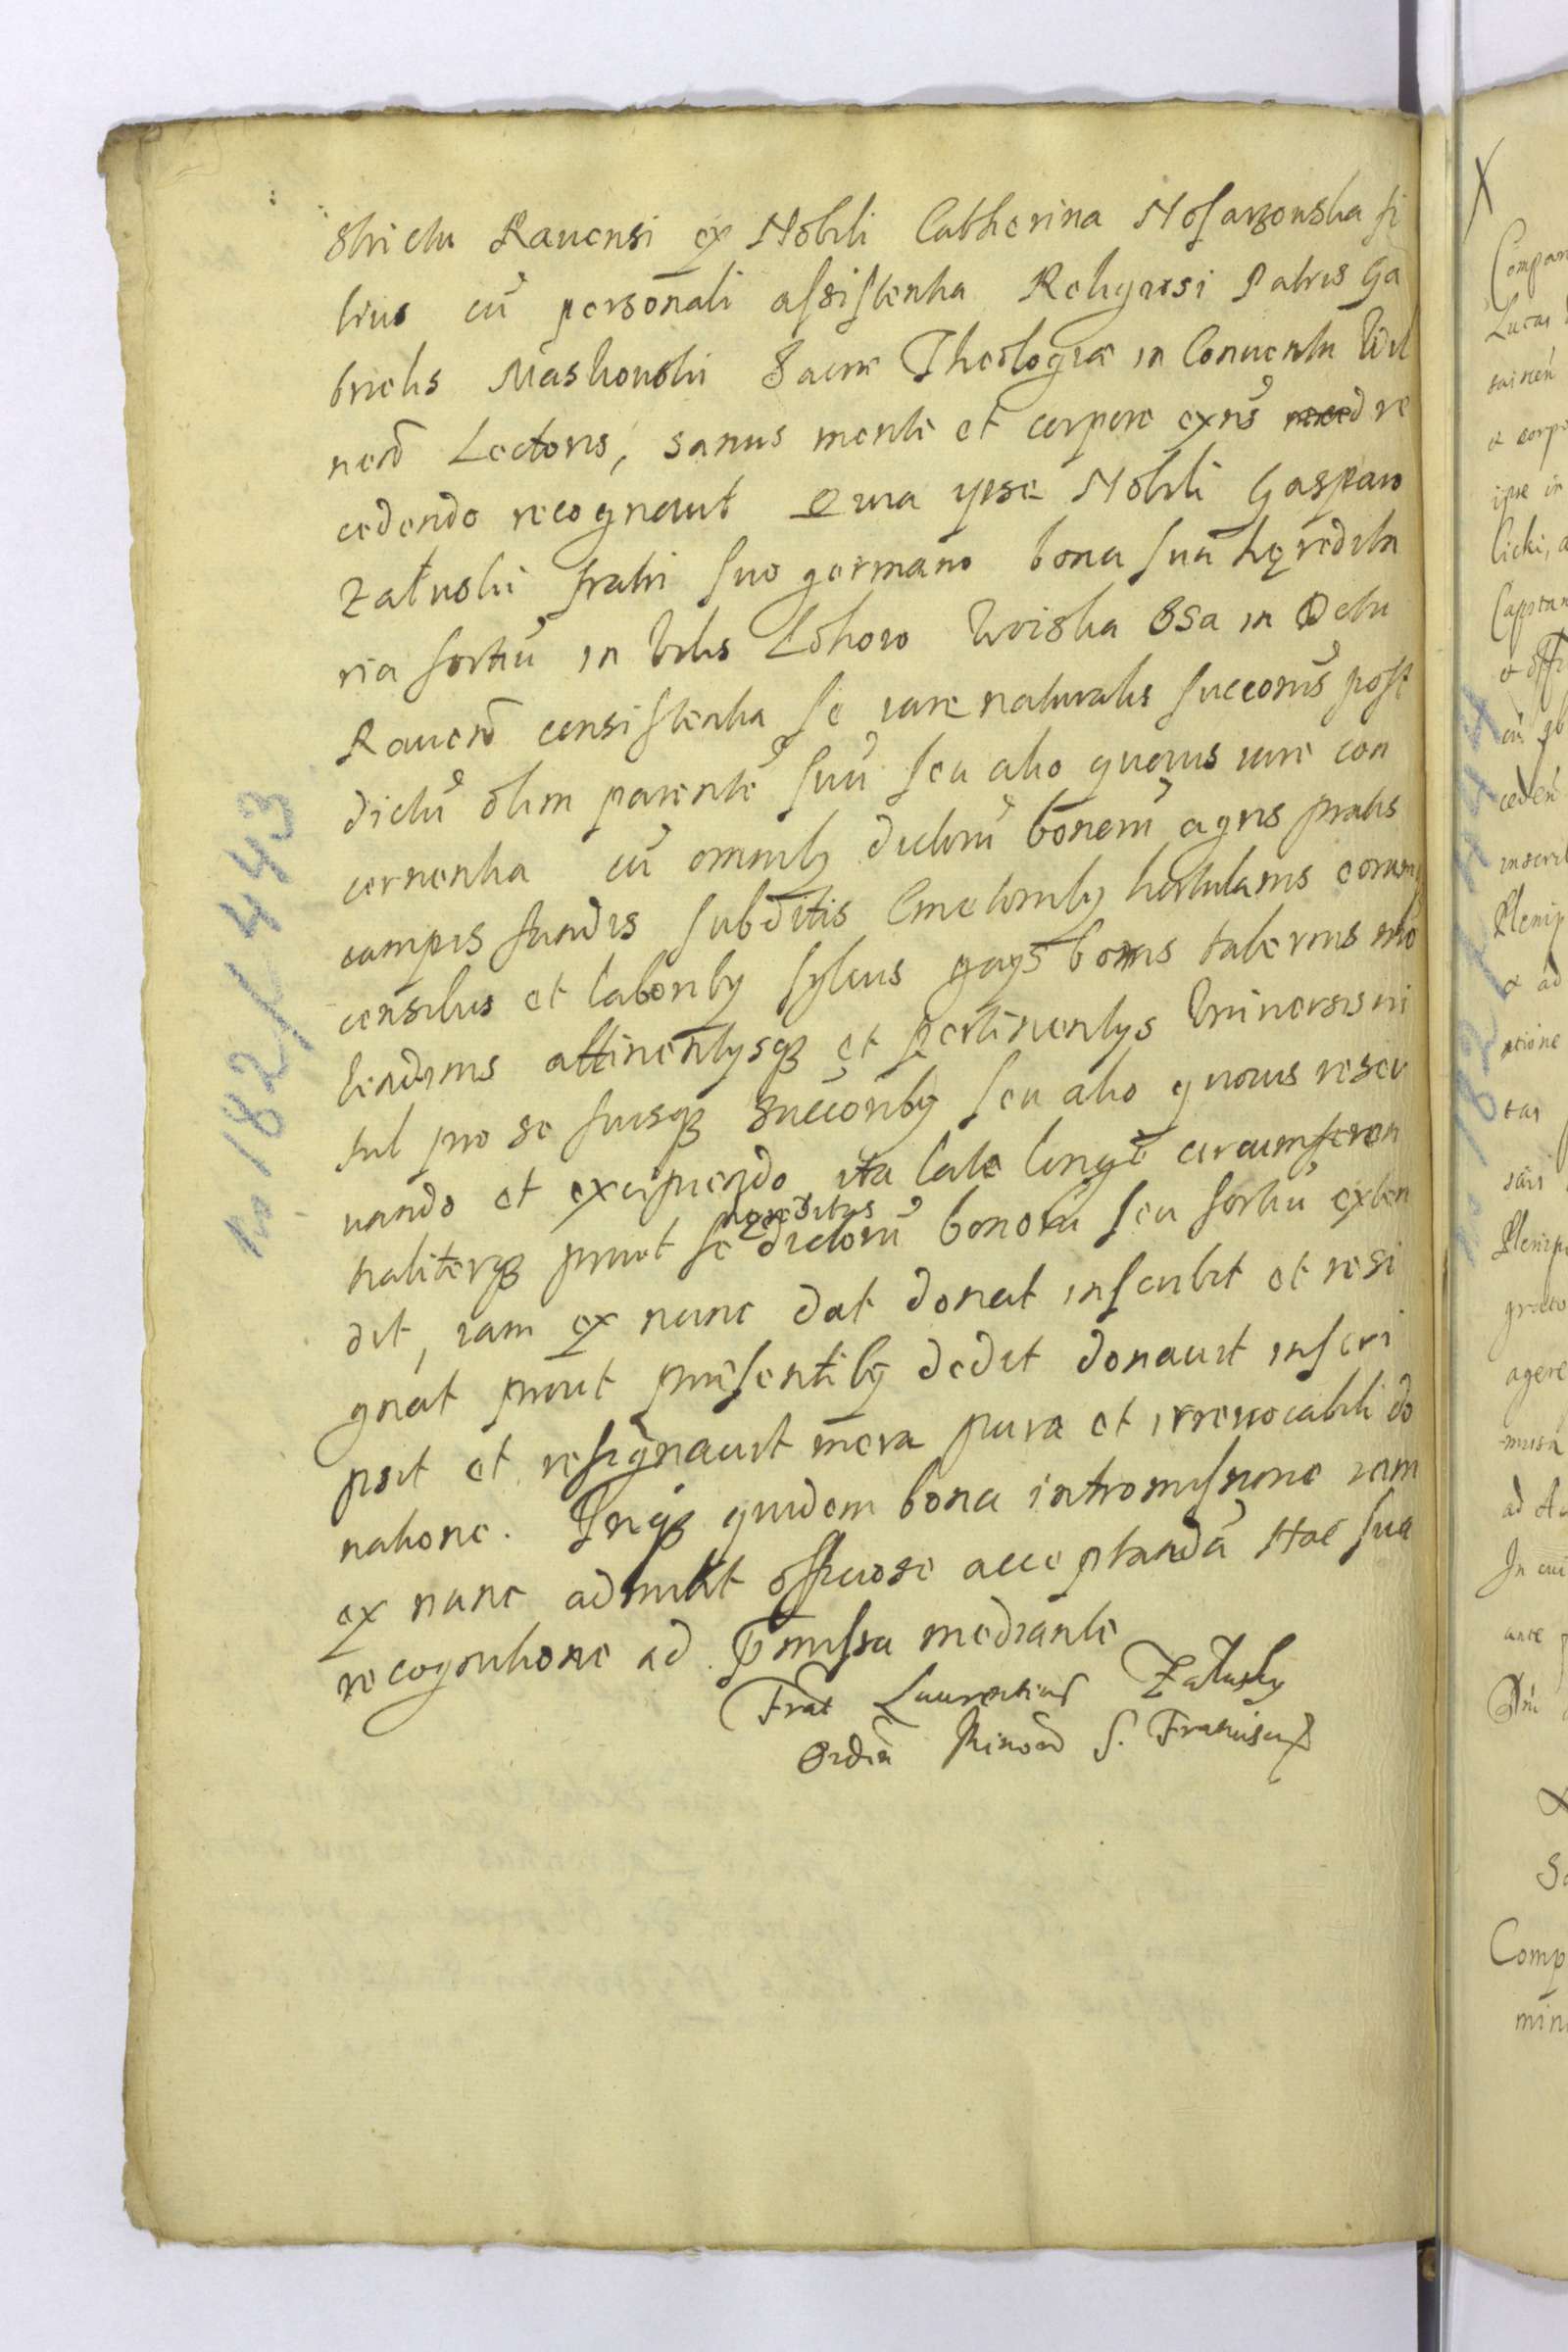 strictu Rauensi ex Nobili Catherina Nosarzouska fi
lius cũ personali assistentia Religiosi Patris Ga
brielis Maskouski Sacræ Theologiæ in Conuentu Vil
neñ Lectoris, sanus mente et corpore exñs re
cedendo recognouit Quia ipse Nobili Gasparo
Załuski fratri suo germano bona sua hęredita
ria sortiũ in Villis Zdkowo Wolska Osa in Debu
Raueñ consistentia se iure naturalis succonis post
dictũ olim parentẽ suũ seu alio quouis iure con
cernentia cũ omnibq dictorũ bonorũ agris pratis
campis fundis subditis Cmetonibq hortulanis eorumq
censibus et laboribq syluis gays borris tabernis mo
lendinis attinentysqȝ et pertinentys Vniuersis ni
hil pro se suisqȝ succoribq seu alio quouis reser
uando et excipiendo ita late longe circumferen
tialiterqȝ prout se hęreditas dictorũ bonorũ seu sortiũ exten
dit, iam ex nunc dat donat inscribit et resi
gnat prout præsentibq dedit donauit inscri
psit et resignauit mera pura et irreuocabili do
natione. Inqȝ quidem bona intromissione iam
ex nunc admittit officiose acceptandã Hac sua
recognitione ad præmissa mediante
Frat Laurentius Załusky
Ordiñ Minoꝝ S. Francisci
No 182/443
X
Compar
Lucas
& corp
ipse in
licki, a
Capitan
& offi
cedeñ
inscrib
Plenip
& ad
ptione
Plenipo
agere
ad A
In cui
ante
Comp
min
No 182/444